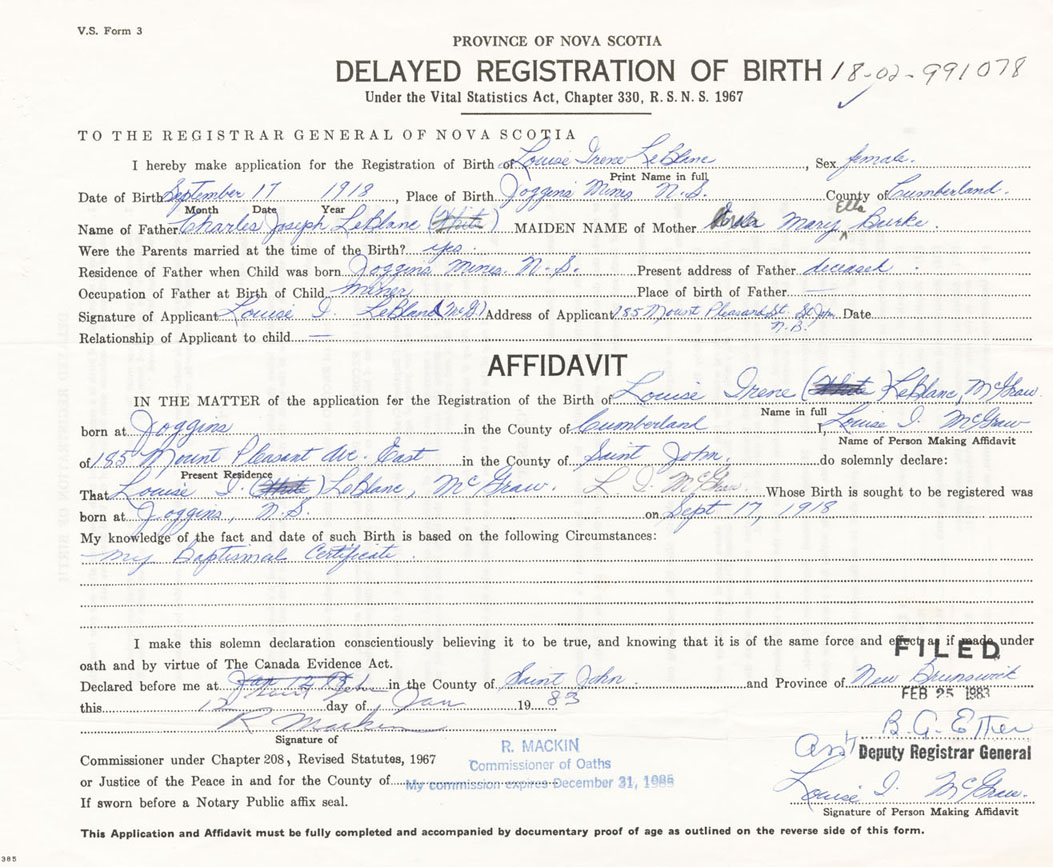 V.S. Form 3
PROVINCE OF NOVA SCOTIA
DELAYED REGISTRATION OF BIRTH 18-02-991078
Under the Vital Statistics Act, Chapter 330, R. S. N. S. 1967
TO THE REGISTRAR GENERAL OF NOVA SCOTIA
I hereby make application for the Registration of Birth of Louise Irene LeBlanc, Sex female.
Print Name in full
Date of Birth September 17 1918, Place of Birth Joggins Mines N.S. County of Cumberland.
Month Date Year
Name of Father Charles Joseph LeBlanc (White) MAIDEN NAME of Mother Mary Ella Burke.
Were the Parents married at the time of the Birth? yes.
Residence of Father when Child was born Joggins Mines. N.S. Present address of Father deceased.
Occupation of Father at Birth of Child miner Place of birth of Father —
Signature of Applicant Louise I. LeBlanc (McG) Address of Applicant 185 Mount Pleasant St. St John N.B. Date
Relationship of Applicant to child —
AFFIDAVIT
IN THE MATTER of the application for the Registration of the Birth of Louise Irene (White) LeBlanc, McGraw
Name in full
born at Joggins in the County of Cumberland I, Louise I. McGraw
Name of Person Making Affidavit
of 185 Mount Pleasant Ave. East in the County of Saint John. do solemnly declare:
Present Residence
That Louise I. (White) LeBlanc, McGraw. L I McGraw Whose Birth is sought to be registered was
born at Joggins, N.S. on Sept 17, 1918
My knowledge of the fact and date of such Birth is based on the following Circumstances:
My Baptismal Certificate.
I make this solemn declaration conscientiously believing it to be true, and knowing that it is of the same force and effect as if made under
FILED
oath and by virtue of The Canada Evidence Act.
Declared before me at Saint John in the County of Saint John. and Province of New Brunswick
FEB 25 1983
this 12 day of Jan 19 83
R Mackin
B. G. Etter
Signature of
Ass't Deputy Registrar General
Commissioner under Chapter 208, Revised Statutes, 1967
R. MACKIN
Commissioner of Oaths
or Justice of the Peace in and for the County of
My commission expires December 31, 1985
Louise I. McGraw.
If sworn before a Notary Public affix seal.
Signature of Person Making Affidavit
This Application and Affidavit must be fully completed and accompanied by documentary proof of age as outlined on the reverse side of this form.
385